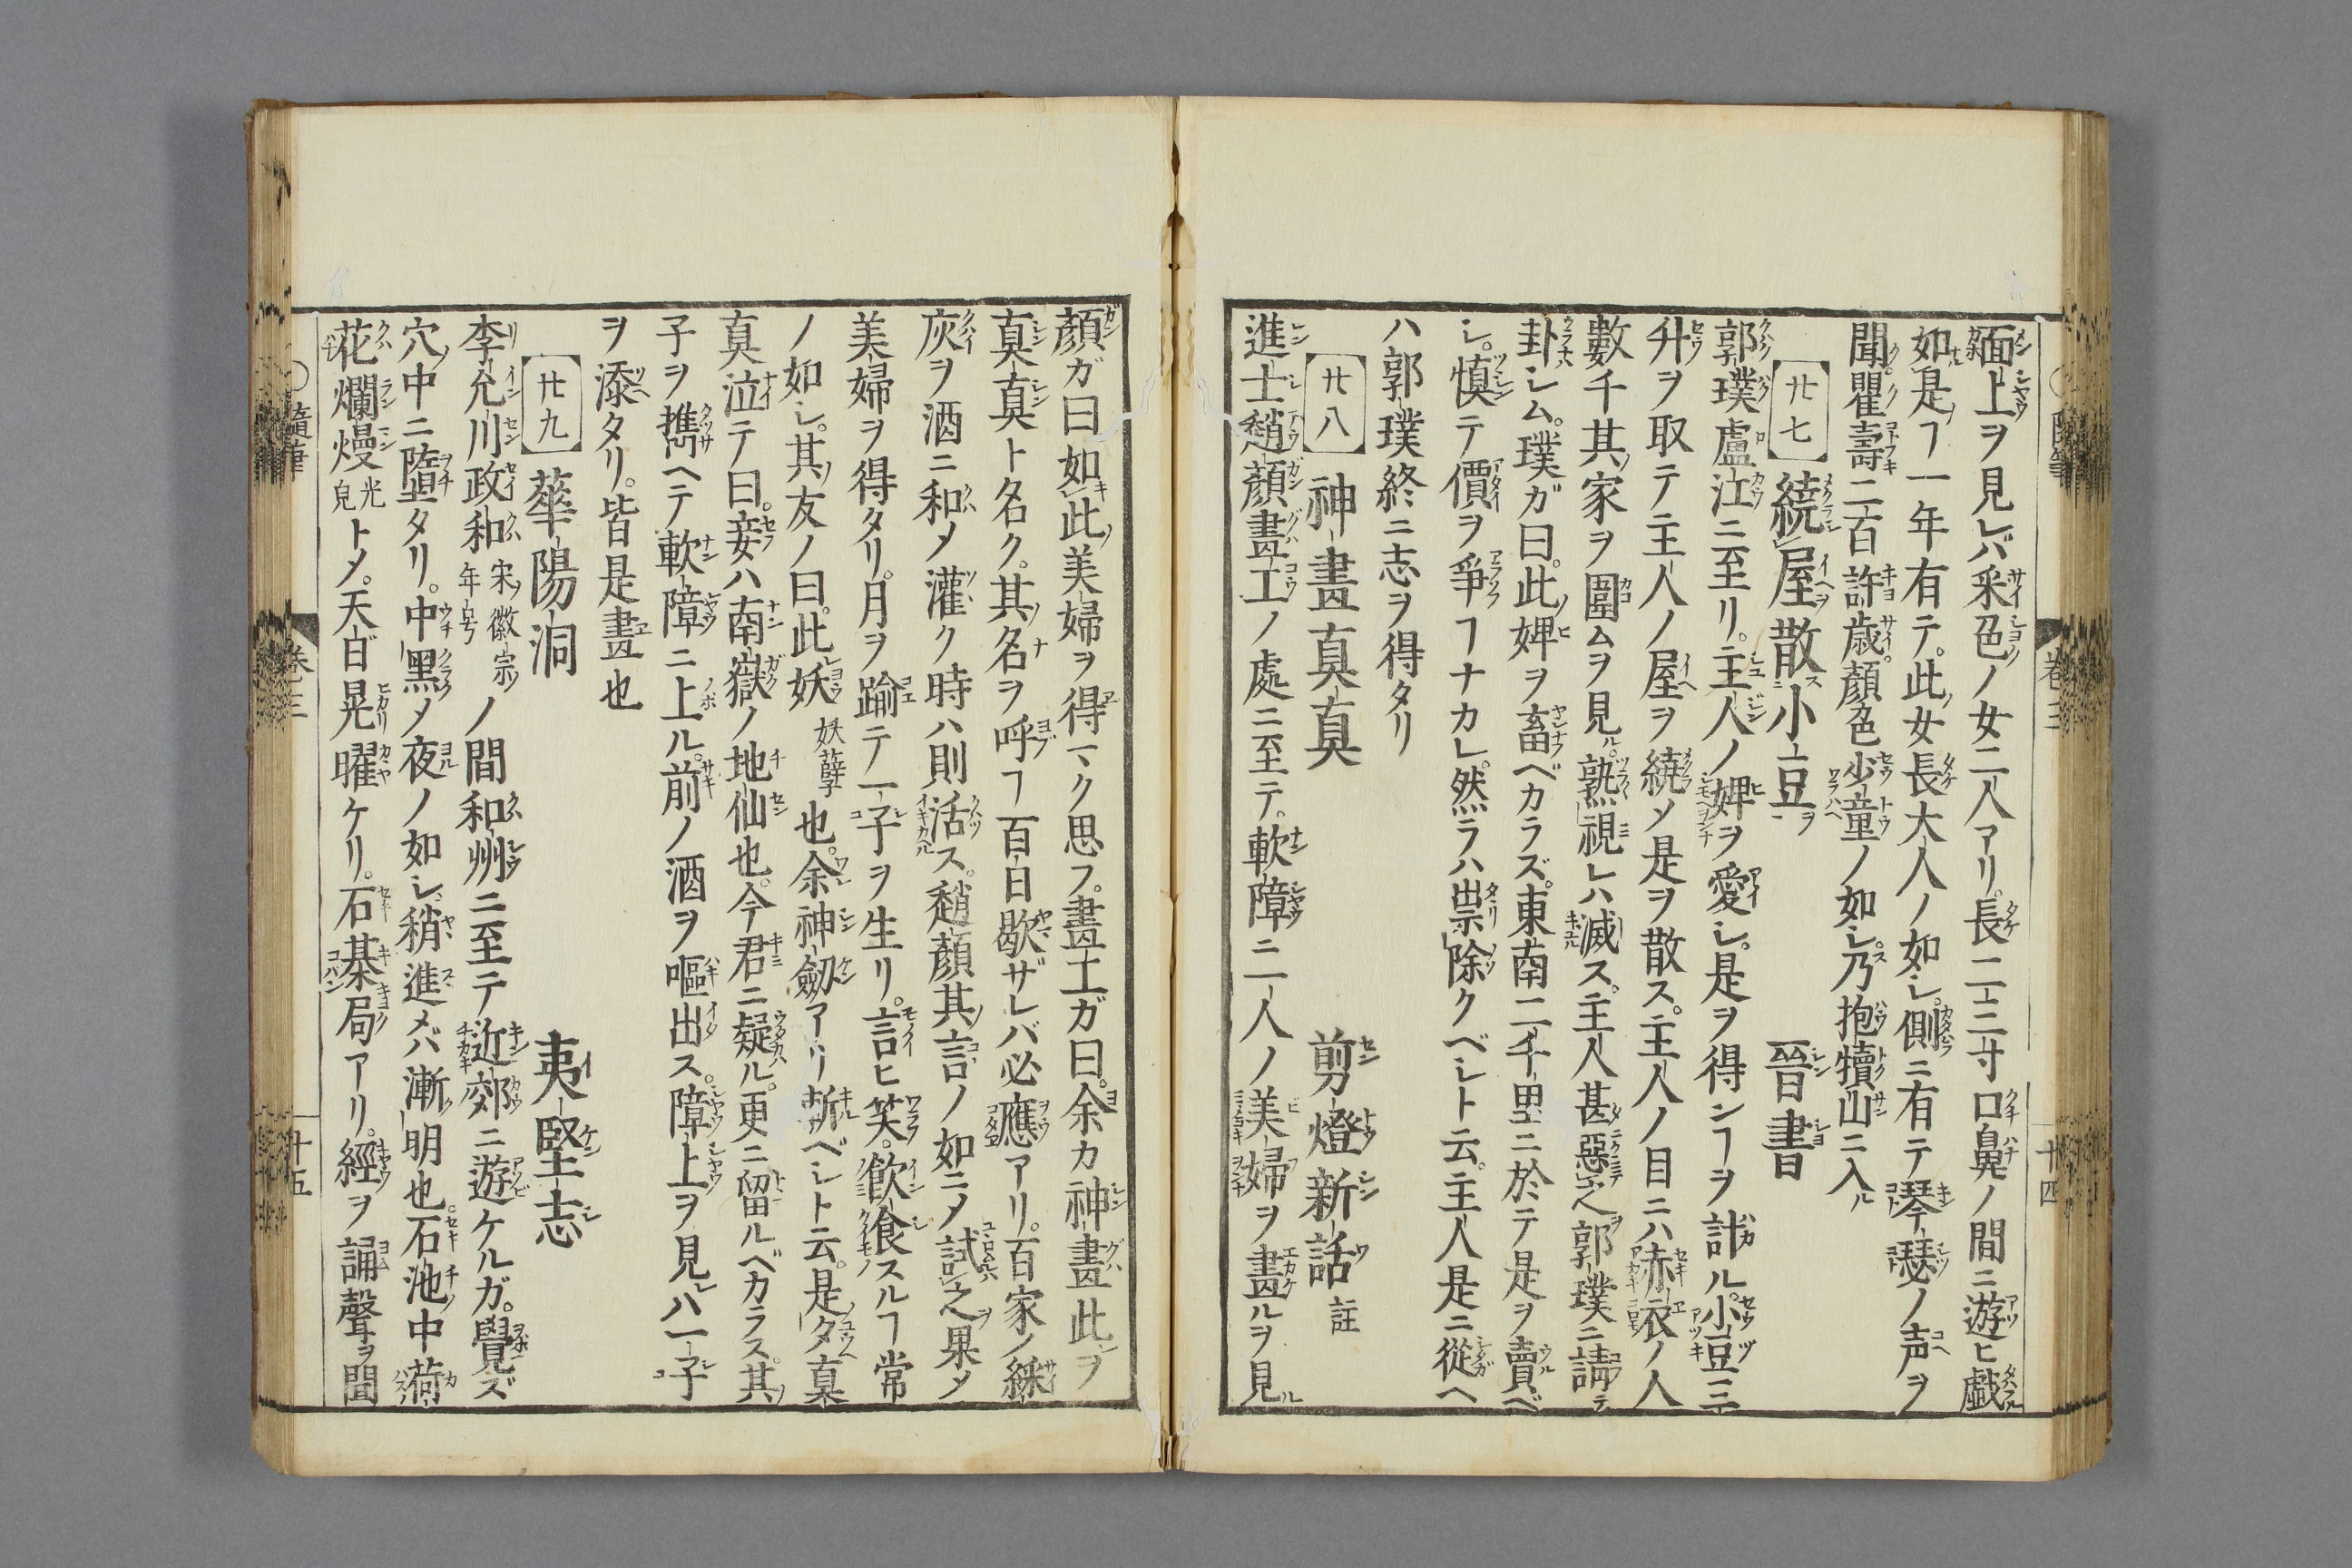 面上ヲ見レバ采色ノ女二人アリ。長二三寸口鼻ノ間ニ遊ヒ戯
如是ヿ一年有テ。此女長大人ノ如シ。側ニ有テ琴瑟ノ声ヲ
聞瞿壽二百許歳。顔色少童ノ如シ。乃抱犢山ニ入ル
廿七 繞屋散小豆 晉書
郭璞盧江ニ至リ。主人ノ婢ヲ愛シ。是ヲ得ンヿヲ計ル。小豆三
升ヲ取テ主人ノ屋ヲ繞メ是ヲ散ス。主人ノ目ニハ赤衣ノ人
數千其家ヲ圍ムヲ見ル。熟視レハ滅ス。主人甚惡之郭璞ニ請テ
卦シム。璞ガ曰。此婢ヲ畜ベカラズ。東南二千里ニ於テ是ヲ賣ベ
シ。慎テ價ヲ爭ヿナカレ。然ラハ祟除クベシト云。主人是ニ從ヘ
ハ郭璞終ニ志ヲ得タリ
廿八 神畫真真 剪燈新話 註
進士趙顔畫工ノ處ニ至テ。軟障ニ一人ノ美婦ヲ畫ルヲ見ル
○隨筆 卷三 十四
顔ガ曰如此美婦ヲ得マク思フ。畫工ガ曰。余カ神畫此ヲ
真真ト名ク。其名ヲ呼ヿ百日歇ザレバ必應アリ。百家ノ綵
灰ヲ酒ニ和メ灌ク時ハ則活ス。趙顔其言ノ如ニメ試之果メ
美婦ヲ得タリ。月ヲ踰テ一子ヲ生リ。言ヒ笑。飲食スルヿ常
ノ如シ。其友ノ曰。此妖 妖孽 也。余神劔アリ斬ベシト云。是夕真
真泣テ曰。妾ハ南嶽ノ地仙也。今君ニ疑ル。更ニ留ルベカラス。其
子ヲ携ヘテ軟障ニ上ル。前ノ酒ヲ嘔出ス。障上ヲ見レハ一子
ヲ添タリ。皆是畫也
廿九 華陽洞 夷堅志
李允川政和 宋徽宗ノ年号 ノ間和州ニ至テ近郊ニ遊ケルガ。覺ズ
穴中ニ墮タリ。中黒メ夜ノ如シ。稍進メバ漸明也。石池中荷
花爛熳 光皃 トメ。天日晃曜ケリ。石棊局アリ。經ヲ誦聲ヲ聞
○隨筆 卷三 十五